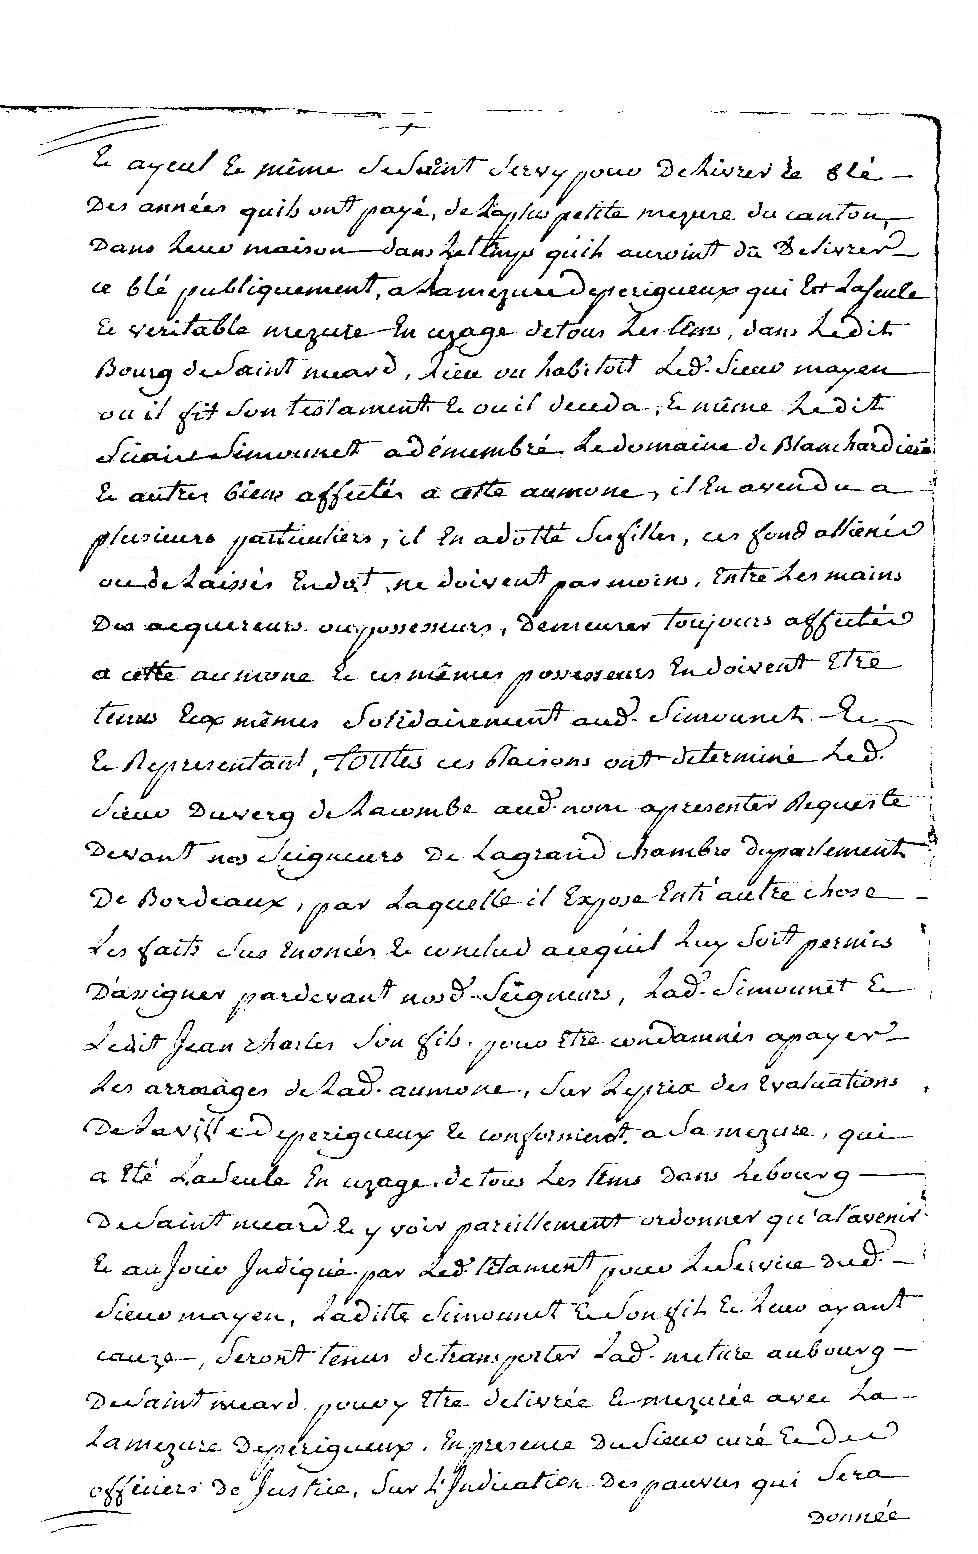 Et ayeul Et même Se Saint Servy pour Delivrer Le Blé
Des années quils ont payé, de Laplus petite mezure du canton,
Dans Leur maison dans Letemps quils auroint dû Delivrer
ce blé publiquement, a Lamezure deperigueux qui Est Laseule
Et veritable mezure En uzage detous Les tems, dans Ledit
Bourg de Saint meard, Lieu ou habitoit Led. Sieur mayen
ou il fit Son testament Et ou il deceda, Et même Ledit
Sicaire Simounet adémembré Ledomaine de Blanchardiere
Et autres biens affectés a cette aumone, il En avendu a
plusieurs particuliers, il En adotté Sesfilles, ces fond allienés
ou delaissés Endot, ne doivent pas moins, Entre Les mains
Des acquereurs ou possesseurs, Demeurer toujours affectés
a cette aumone Et ces mêmes possesseurs Endoivent Etre
tenus Eux mêmes Solidairement aud. Simounet Et
Et Representant, toutes ces Raisons ont determiné Led.
Sieur Duverg de Lacombe aud. nom apresenter Requeste
Devant nos Seigneurs de Lagrand chambre duparlement
De Bordeaux, par Laquelle il Expose Entr'autre chose
Les faits Sus Enoncés Et conclud acequ'il Luy Soit permis
Dassigner pardevant nosd. Seigneurs, Lad. Simounet Et
Ledit Jean charles Son fils. pour Etre condamnés apayer
Les arrerages de Lad. aumone, Sur Leprix des Evaluations
De Laville deperigueux Et conforment a Sa mezure, qui
a Eté LaSeule En uzage detous Les tems dans Lebourg
De Saint meard Et y voir pareillement ordonner qu'alavenir
Et au Jour Indiqué par Led. tetament pour Le Service dud.
Sieur mayen, Laditte Simounet Et Son fils Et Leur ayant
cauze, Seront tenus detransporter Lad. meture aubourg
De Saint meard pour y Etre delivrée Et mezurée avec La
Lamezure Deperigueux, En presence du Sieur curé Et des
officiers de Justice, Sur L'Indication des pauvres qui Sera
Donnée